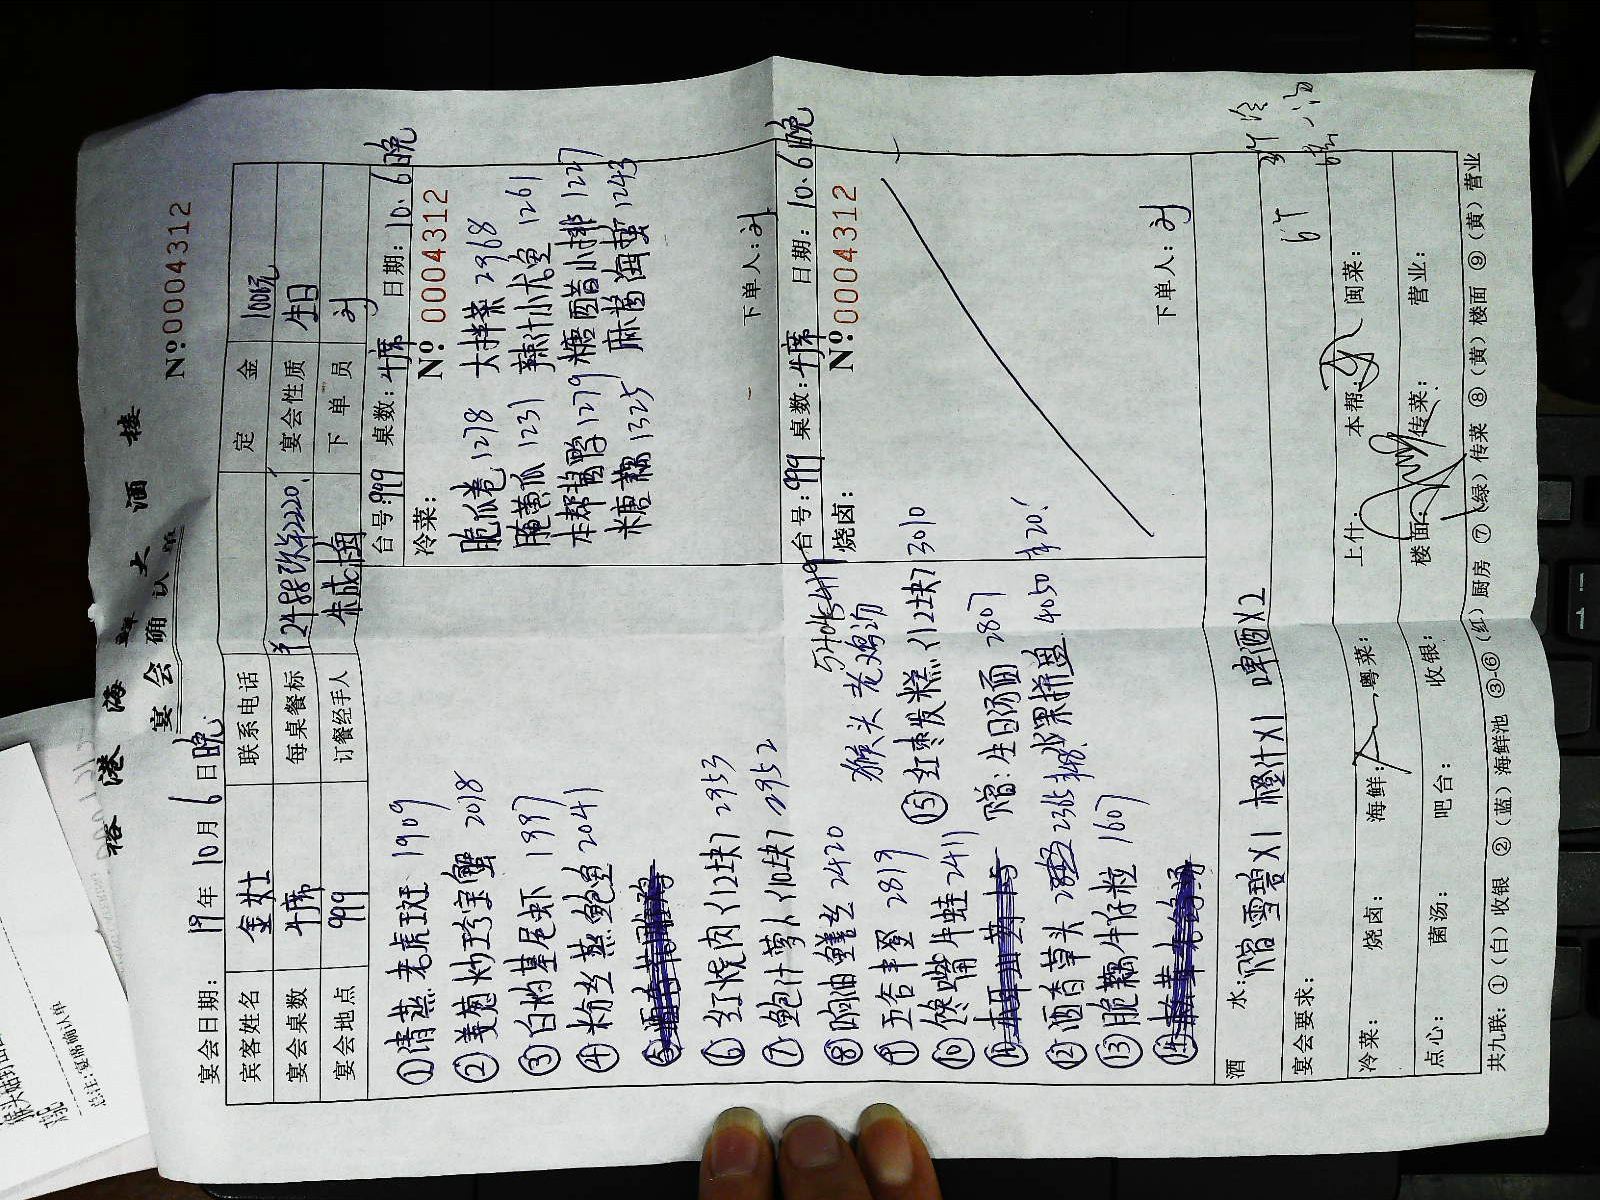 裕港海鲜大酒楼
宴会确认单
№0004312
宴会日期： 19年 10月 6日晚
宾客姓名 联系电话 定金 1000元
宴会桌数 4席 每桌餐标 宴会性质 生日
宴会地点 999 订餐经手人 朱成梅 下单员 刘
①清蒸老虎斑 1909
②姜葱炒珍宝蟹 2018
③白灼基尾虾 1997
④粉丝蒸鲍鱼 2041
⑤
⑥红烧肉(12块) 2953
⑦鲍汁萝卜(10块) 2952
⑧响油鳝丝 2420
⑨五谷丰登 2819
⑩馋嘴牛蛙 2411
⑪
⑫酒香草头
⑬脆藕牛仔粒 1607
⑭
猴头老鸡汤
⑮红枣发糕(12块) 3010
赠：生日汤面 2807
水果拼盘 4050
台号：999 桌数：4席 日期：10.6晚
冷菜： №0004312
脆瓜卷 1278 大拌菜 2968
腌黄瓜 1231 辣汁小尤鱼 1261
本帮酱鸭 1279 糖醋小排 1227
糖藕 1325 麻酱海蜇 1243
下单人：刘
台号：999 桌数：4席 日期：10.6晚
烧卤： №0004312
下单人：刘
酒水：赠雪碧X1 橙汁X1 啤酒X2
宴会要求：
冷菜： 烧卤： 海鲜： 粤菜： 上什： 本帮： 闽菜：
点心： 菌汤： 吧台： 收银： 楼面： 传菜： 营业：
共九联：①(白)收银 ②(蓝)海鲜池 ③-⑥(红)厨房 ⑦(绿)传菜 ⑧(黄)楼面 ⑨(黄)营业